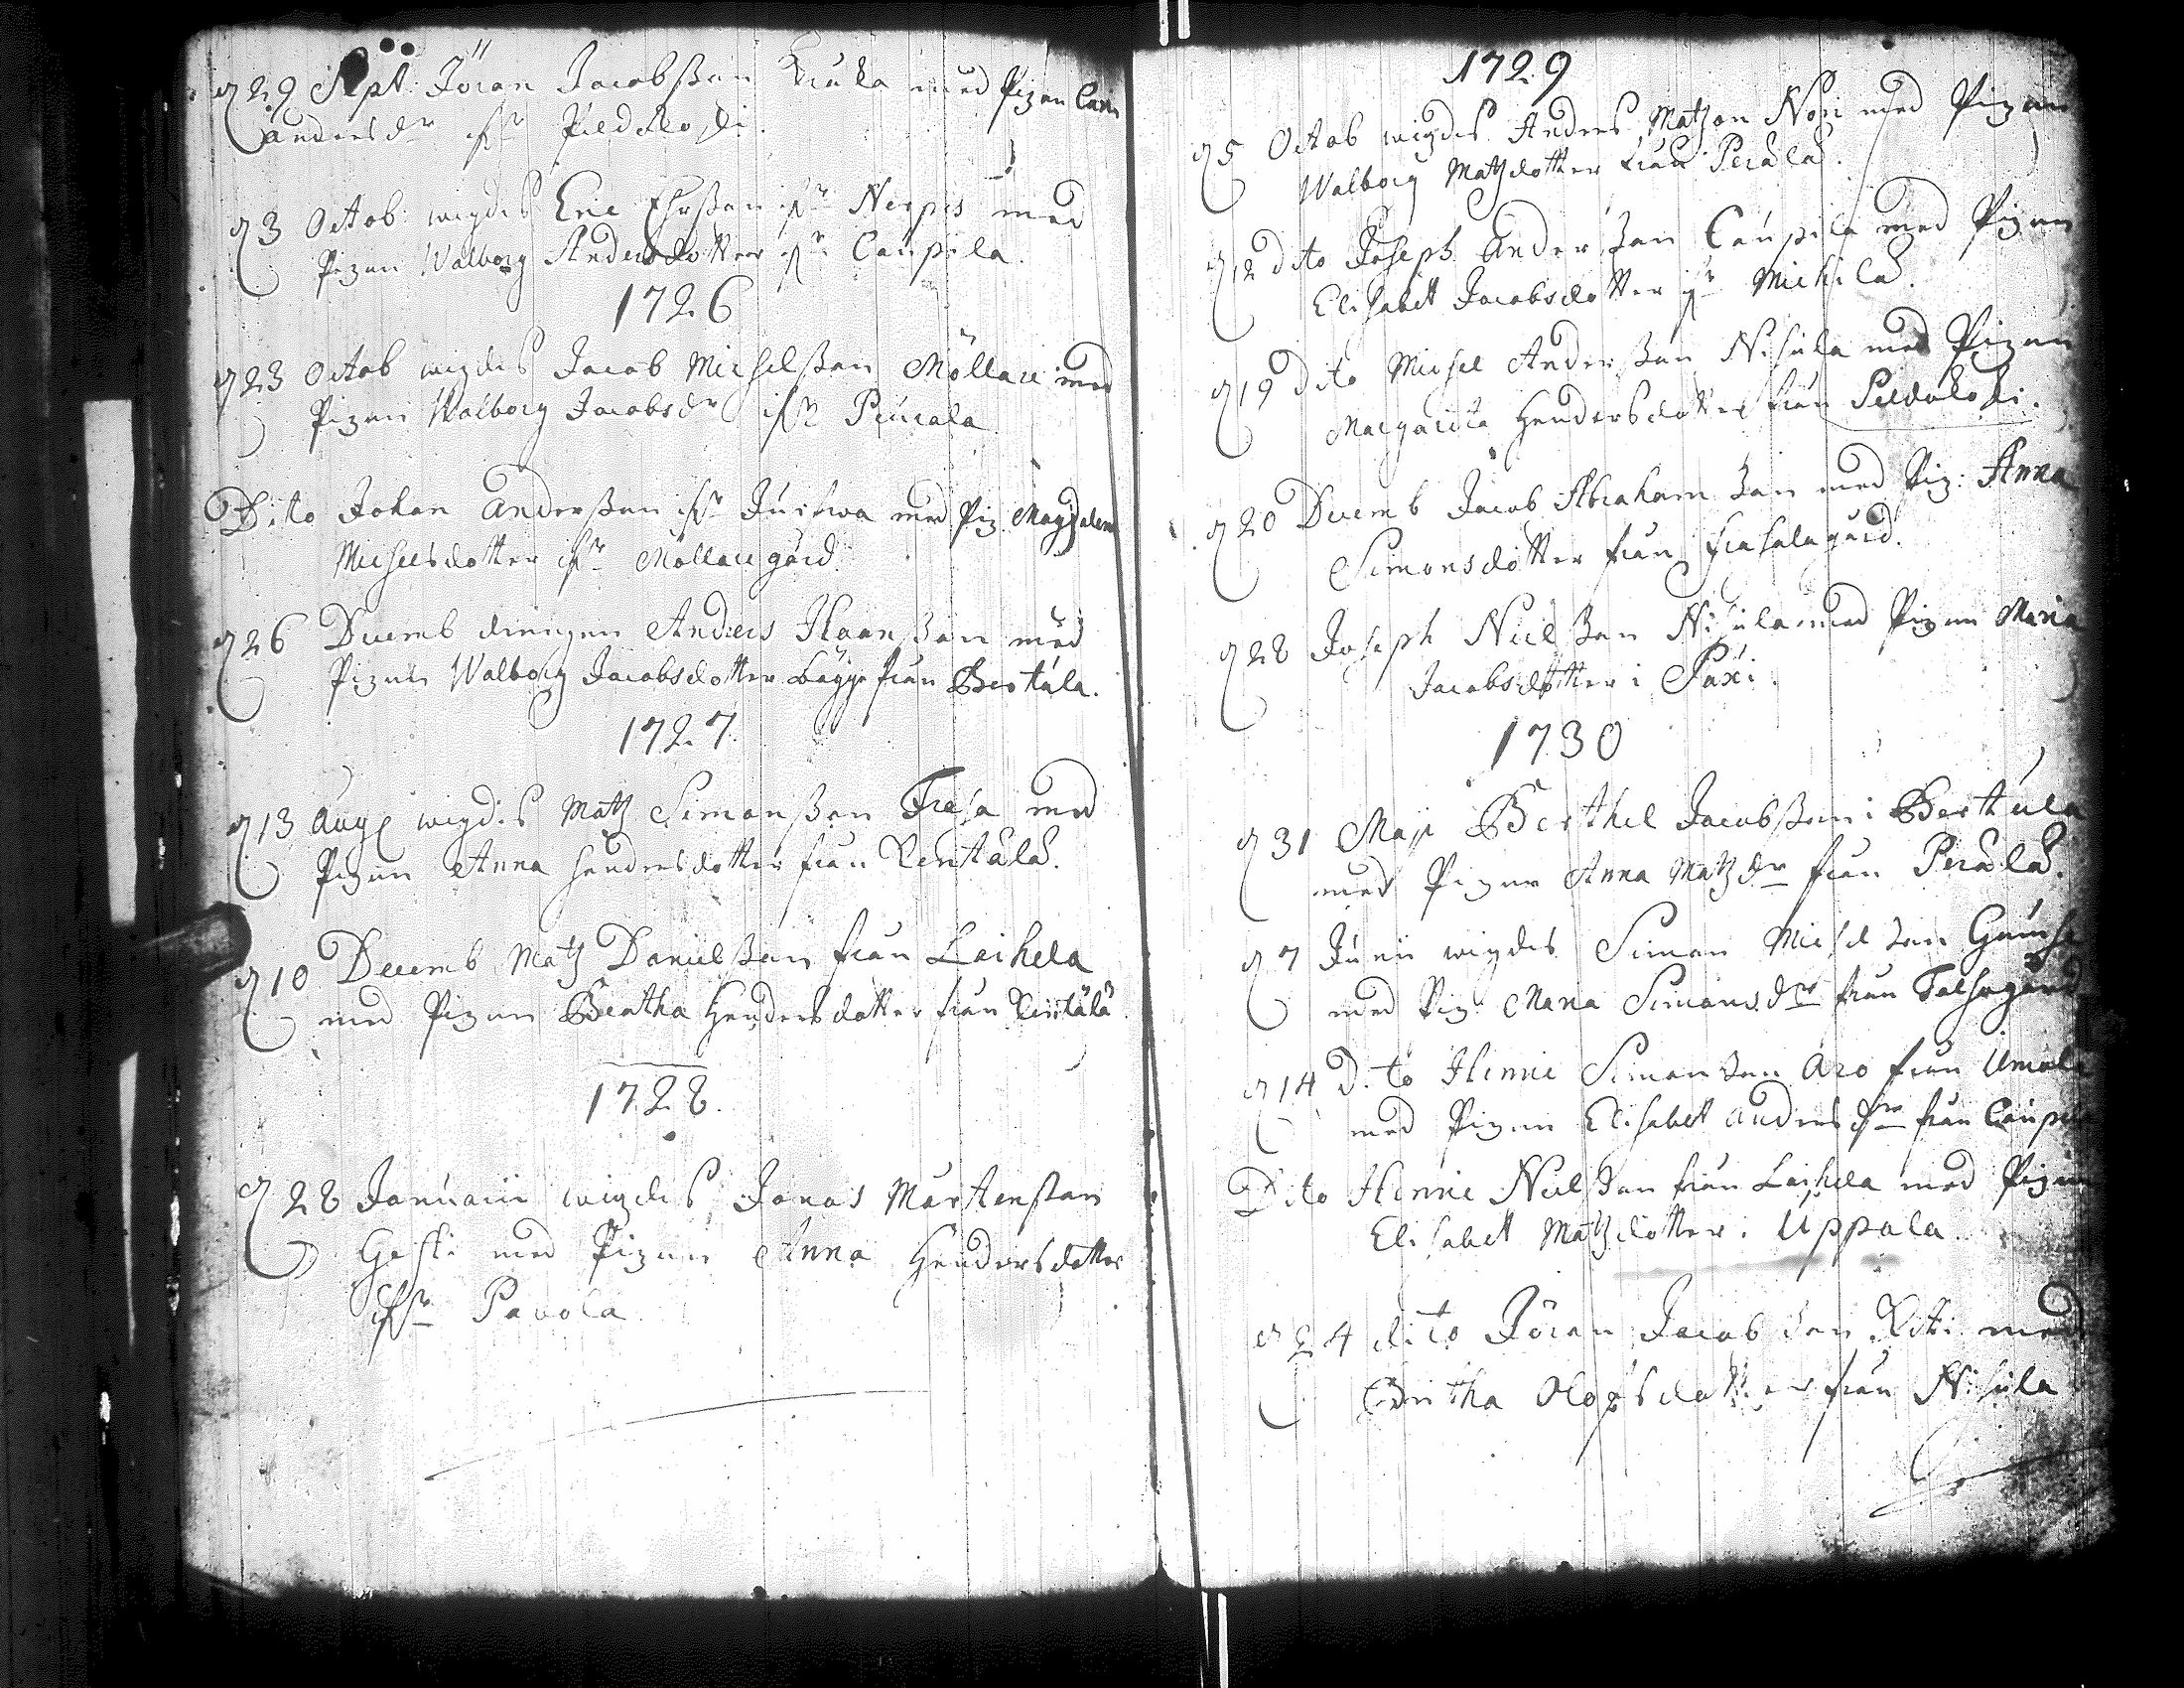 d 29 Sept: Jöran Jacobsson Kruka med Pigan Carin
Andersdr ifr Peldoloski.
d 3 Octob wigdes Eric Ehrsson ifr Nerpis med
Pigan Walborg Andersdotter ifr Caupila.
1726
d 23 Octob wigdes Jacob Michelsson Möllare med
Pigan Walborg Jacobsdr ifr Peurala
Dito Johan Andersson ifr Juirwa med Pig. Magdalena
Michelsdotter ifr Möllaregård.
d 26 Decemb drengen Anders Haansson med
Pigan Walborg Jacobsdotter bägge från Bertula.
1727
d 13 Aug wigdes Matz Simonsson Fresa med
Pigan Anna Hendersdotter från Rentälä.
d 10 Decemb Matz Danielsson från Laihela
med Pigan Beatha Hendersdotter från Rentälä.
1728.
d 28 Januarii wigdes Jonas Mårtensson
Geski med Pigan Anna Hendersdotter
ifr Pavola.
1729
d 5 Octob wigdes Anders Matzson Nori med Pigan
Walborg Matzdotter från Perälä.
d 12 dito Joseph Andersson Caupila med Pigan
Elisabet Jacobsdotter ifr Michilä.
d 19 dito Michel Andersson Nisula med Pigan
Margareta Hendersdotter från Peldoloski.
d 20 Decemb Jacob Abrahamsson med Pig: Anna
Simonsdotter från gård.
d 28 Joseph Nielsson Nisula med Pigan Maria
Jacobsdotter i Paxi.
1730
d 31 Maji Berthel Jacobsson i Bertula
med Pigan Anna Matzdr från Perälä.
d 7 Junii wigdes Simon Michelsson
med Pig. Maria Simonsdr från
d 14 D:to Henric Simonsson Aro från
med Pigan Elisabet Andersdr från Caupila
Dito Henric Nielsson från Laihela med Pigan
Elisabet Matzdotter i Uppala.
d 24 dito Jöran Jacobsson med
Britha Olofsdotter från Nisula